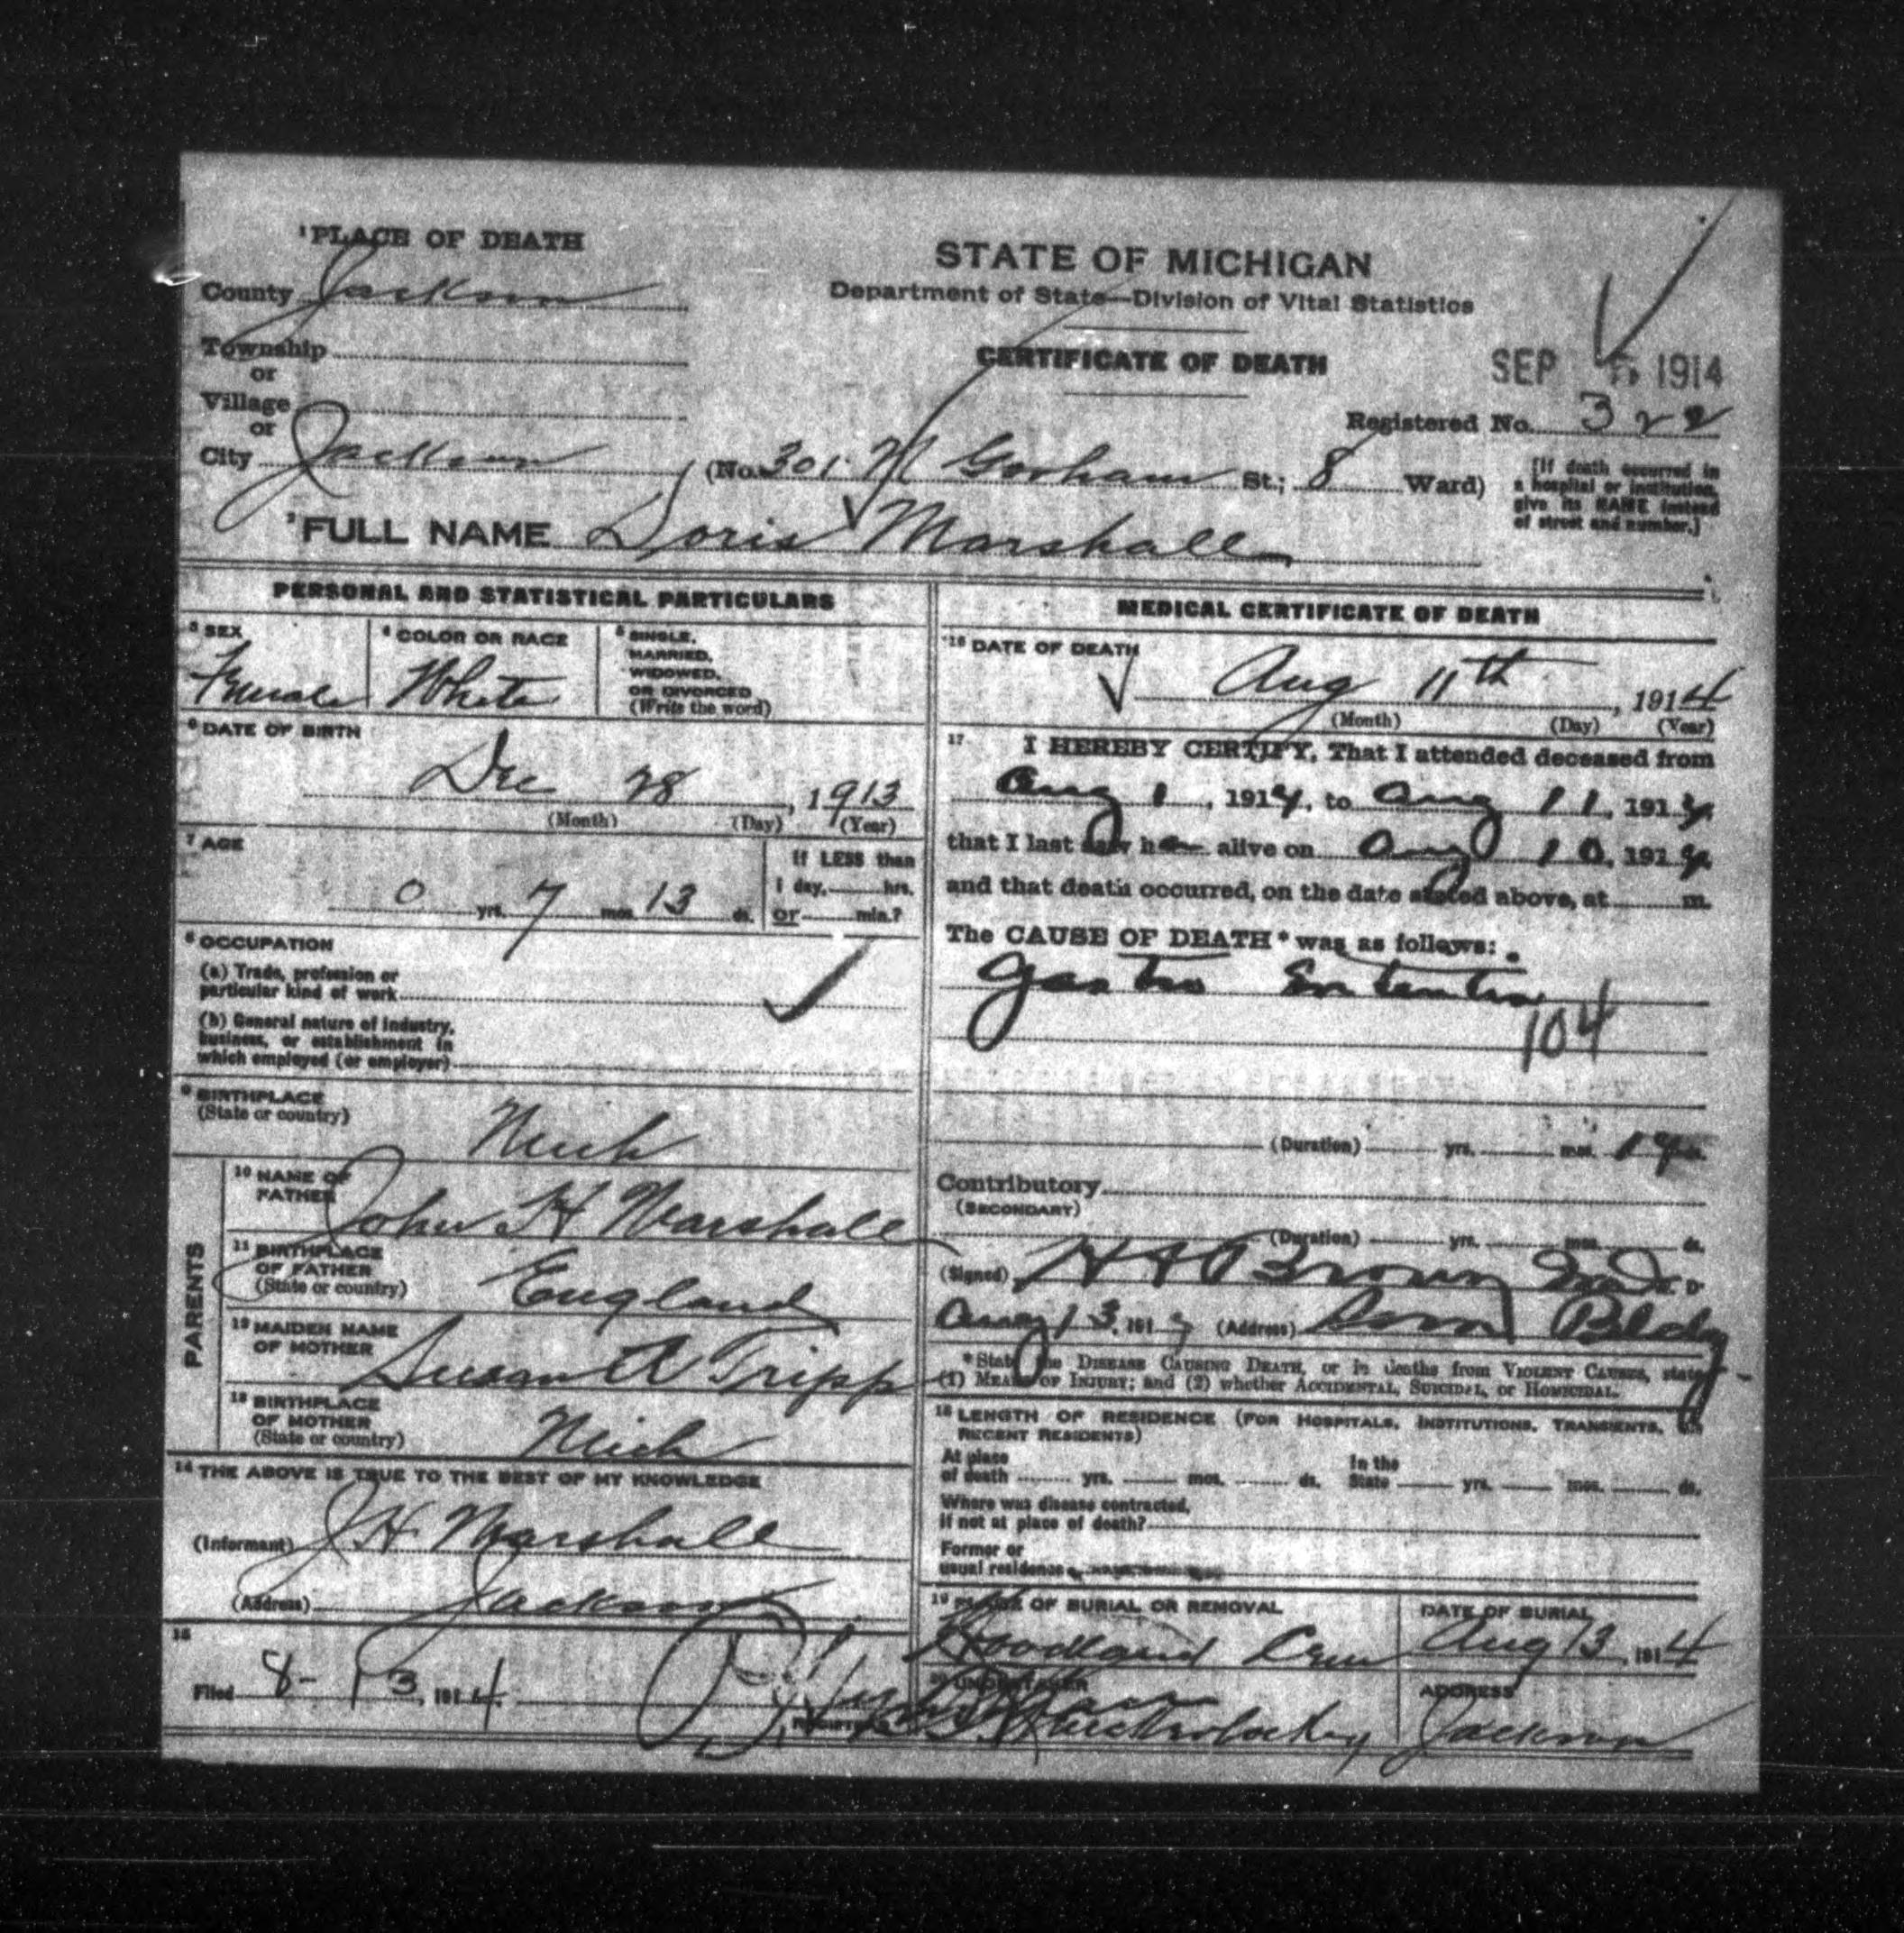 ¹PLACE OF DEATH
County Jackson
Township
or
Village
or
City Jackson (No. 301 N Gorham St.; 8 Ward)
STATE OF MICHIGAN
Department of State—Division of Vital Statistics
CERTIFICATE OF DEATH
SEP 1914
Registered No. 322
[If death occurred in
a hospital or institution,
give its NAME instead
of street and number.]
²FULL NAME Doris Marshall
PERSONAL AND STATISTICAL PARTICULARS
³ SEX
Female
⁴ COLOR OR RACE
White
⁵ SINGLE,
MARRIED,
WIDOWED,
OR DIVORCED
(Write the word)
⁶ DATE OF BIRTH
Dec 28, 1913
(Month) (Day) (Year)
⁷ AGE
0 yrs. 7 mos. 13 ds.
If LESS than
1 day, hrs.
or min.?
⁸ OCCUPATION
(a) Trade, profession or
particular kind of work
(b) General nature of industry,
business, or establishment in
which employed (or employer)
⁹ BIRTHPLACE
(State or country)
Mich
PARENTS
¹⁰ NAME OF
FATHER
John H Marshall
¹¹ BIRTHPLACE
OF FATHER
(State or country)
England
¹² MAIDEN NAME
OF MOTHER
Susan A Tripp
¹³ BIRTHPLACE
OF MOTHER
(State or country)
Mich
¹⁴ THE ABOVE IS TRUE TO THE BEST OF MY KNOWLEDGE
(Informant) J H Marshall
(Address) Jackson
¹⁵
Filed 8-13, 1914
MEDICAL CERTIFICATE OF DEATH
¹⁶ DATE OF DEATH
Aug 11th, 1914
(Month) (Day) (Year)
¹⁷ I HEREBY CERTIFY, That I attended deceased from
Aug 1, 1914, to Aug 11, 1914,
that I last saw her alive on Aug 10, 1914
and that death occurred, on the date stated above, at m.
The CAUSE OF DEATH* was as follows:
Gastro
104
(Duration) yrs. mos.
Contributory
(SECONDARY)
(Duration) yrs. mos. ds.
(Signed) Brown M.D.
Aug 13, 191 (Address)
*State the DISEASE CAUSING DEATH, or in deaths from VIOLENT CAUSES, state
(1) MEANS OF INJURY; and (2) whether ACCIDENTAL, SUICIDAL, or HOMICIDAL.
¹⁸ LENGTH OF RESIDENCE (FOR HOSPITALS, INSTITUTIONS, TRANSIENTS, OR
RECENT RESIDENTS)
At place
of death yrs. mos. ds.
In the
State yrs. mos. ds.
Where was disease contracted,
if not at place of death?
Former or
usual residence
¹⁹ PLACE OF BURIAL OR REMOVAL
Woodland Cem
DATE OF BURIAL
Aug 13, 1914
²⁰ UNDERTAKER
ADDRESS
Jackson